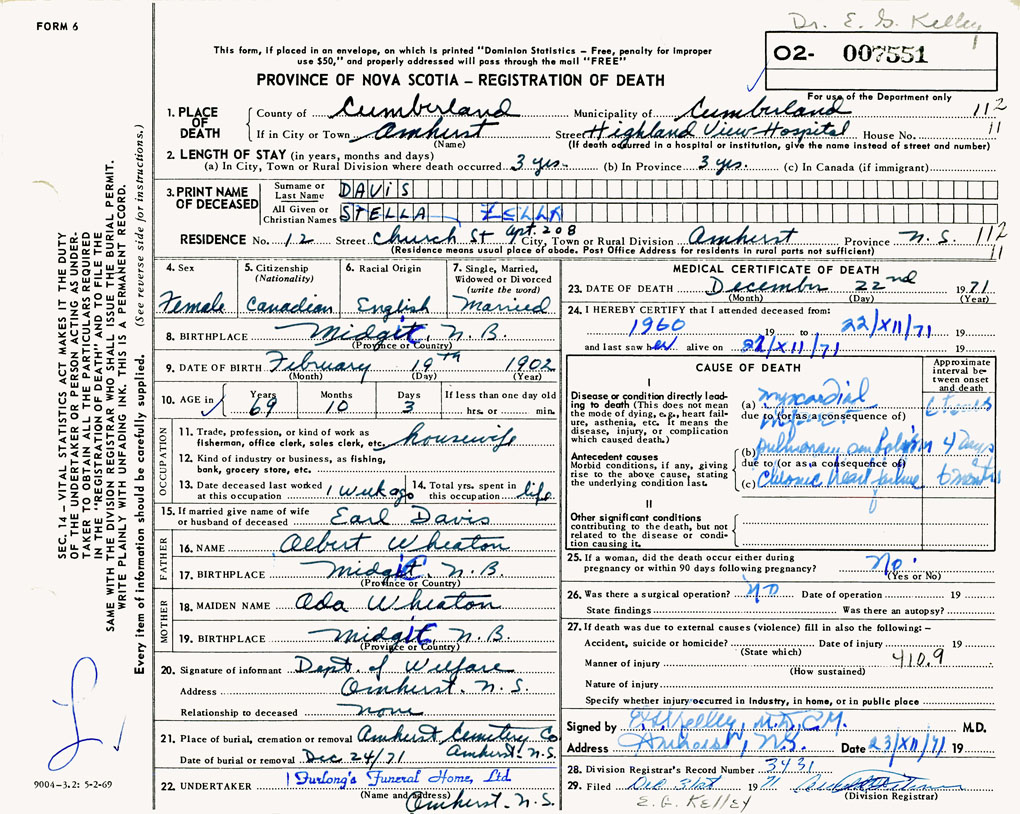 FORM 6
Dr. E. G. Kelley
This form, if placed in an envelope, on which is printed "Dominion Statistics – Free, penalty for improper
use $50," and properly addressed will pass through the mail "FREE"
O2- 007551
PROVINCE OF NOVA SCOTIA – REGISTRATION OF DEATH
For use of the Department only
1. PLACE OF DEATH County of Cumberland Municipality of Cumberland 112
If in City or Town Amherst Street Highland View Hospital House No. 11
(Name) (If death occurred in a hospital or institution, give the name instead of street and number)
2. LENGTH OF STAY (in years, months and days)
(a) In City, Town or Rural Division where death occurred 3 yrs. (b) In Province 3 yrs. (c) In Canada (if immigrant)
3. PRINT NAME OF DECEASED Surname or Last Name DAVIS
All Given or Christian Names STELLA ZELLA
RESIDENCE No. 12 Street Church St Apt. 208 City, Town or Rural Division Amherst Province N.S. 112
(Residence means usual place of abode. Post Office Address for residents in rural parts not sufficient) 11
4. Sex Female
5. Citizenship (Nationality) Canadian
6. Racial Origin English
7. Single, Married, Widowed or Divorced (write the word) Married
8. BIRTHPLACE Midgic, N.B.
(Province or Country)
9. DATE OF BIRTH February 19th 1902
(Month) (Day) (Year)
10. AGE in Years 69 Months 10 Days 3 If less than one day old
hrs. or min.
OCCUPATION
11. Trade, profession, or kind of work as
fisherman, office clerk, sales clerk, etc. housewife
12. Kind of industry or business, as fishing,
bank, grocery store, etc.
13. Date deceased last worked at this occupation 1 week ago 14. Total yrs. spent in this occupation life
15. If married give name of wife
or husband of deceased Earl Davis
FATHER
16. NAME Albert Wheaton
17. BIRTHPLACE Midgic, N.B.
(Province or Country)
MOTHER
18. MAIDEN NAME Ada Wheaton
19. BIRTHPLACE Midgic, N.B.
(Province or Country)
20. Signature of informant Dept. of Welfare
Address Amherst. N.S.
Relationship to deceased none
21. Place of burial, cremation or removal Amherst Cemetery Co
Amherst. N.S.
Date of burial or removal Dec 24/71
22. UNDERTAKER Furlong's Funeral Home, Ltd.
(Name and address) Amherst. N.S.
MEDICAL CERTIFICATE OF DEATH
23. DATE OF DEATH December 22nd 1971
(Month) (Day) (Year)
24. I HEREBY CERTIFY that I attended deceased from:
1960 19 to 22/XII/71 19
and last saw her alive on 22/XII/71 19
CAUSE OF DEATH
Approximate interval between onset and death
I
Disease or condition directly leading to death (This does not mean the mode of dying, e.g., heart failure, asthenia, etc. It means the disease, injury, or complication which caused death.)
(a) Myocardial
due to (or as a consequence of)
Antecedent causes
Morbid conditions, if any, giving rise to the above causes, stating the underlying condition last.
(b) pulmonary embolism 4 days
due to (or as a consequence of)
(c) Chronic heart failure 6 months
II
Other significant conditions
contributing to the death, but not related to the disease or condition causing it.
25. If a woman, did the death occur either during
pregnancy or within 90 days following pregnancy? No.
(Yes or No)
26. Was there a surgical operation? No Date of operation 19
State findings Was there an autopsy?
27. If death was due to external causes (violence) fill in also the following: –
Accident, suicide or homicide? Date of injury 19
(State which)
Manner of injury 410.9
(How sustained)
Nature of injury
Specify whether injury occurred in Industry, in home, or in public place
Signed by E.G. Kelley, M.D., C.M. M.D.
Address Amherst, N.S. Date 23/XII/71 19
28. Division Registrar's Record Number 3431
29. Filed Dec 31st 19 71
(Division Registrar)
E. G. KELLEY
SEC. 14 – VITAL STATISTICS ACT MAKES IT THE DUTY
OF THE UNDERTAKER OR PERSON ACTING AS UNDER-
TAKER TO OBTAIN ALL THE PARTICULARS REQUIRED
IN THE "REGISTRATION OF DEATH" AND TO FILE THE
SAME WITH THE DIVISION REGISTRAR WHO SHALL ISSUE THE BURIAL PERMIT.
WRITE PLAINLY WITH UNFADING INK. THIS IS A PERMANENT RECORD.
Every item of information should be carefully supplied. (See reverse side for instructions.)
9004-3.2: 5-2-69